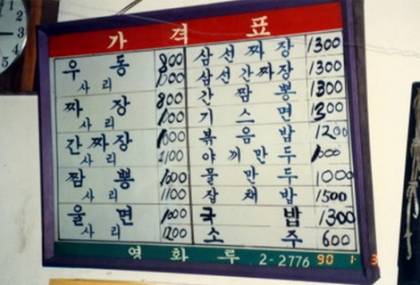 가격표
우동 800
사리 1000
짜장 800
사리 1000
간짜장 1000
사리 1100
짬뽕 1000
사리 1100
울면 1000
사리 1200
삼선짜장 1300
삼선간짜장 1300
간짬뽕 1300
기스면 1300
볶음밥 1200
야끼만두 1000
물만두 1000
잡채밥 1500
국밥 1300
소주 600
역화루 2-2776
90 1 3